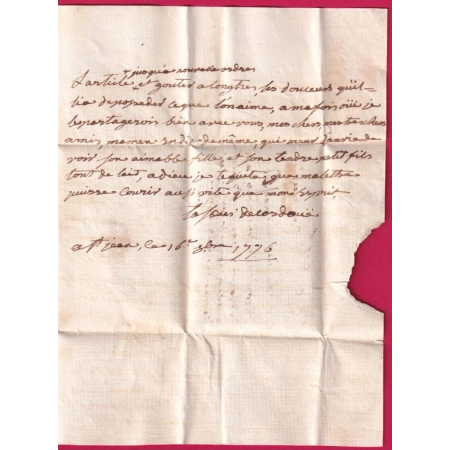 jusqua nouvelle ordre
L'article, et gouter alongtres, les douceurs quil
lia deposseder ceque lonaime, a mafoi, oüi je
lepartagerois bien avec vous, mes chers, mes tres chers
amis, maman endit demême qui meur danvie de
voir son aimable fille, et son tendre petit fils
tout de lait, adieu, je te quite, que malettre
puisse courir ausi vite que mon esprit,
decordoüe
a St jean, le 16e 1776